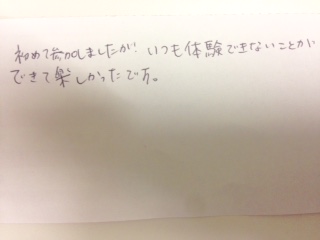 初めて参加しましたが、いつも体験できないことが
できて楽しかったです。